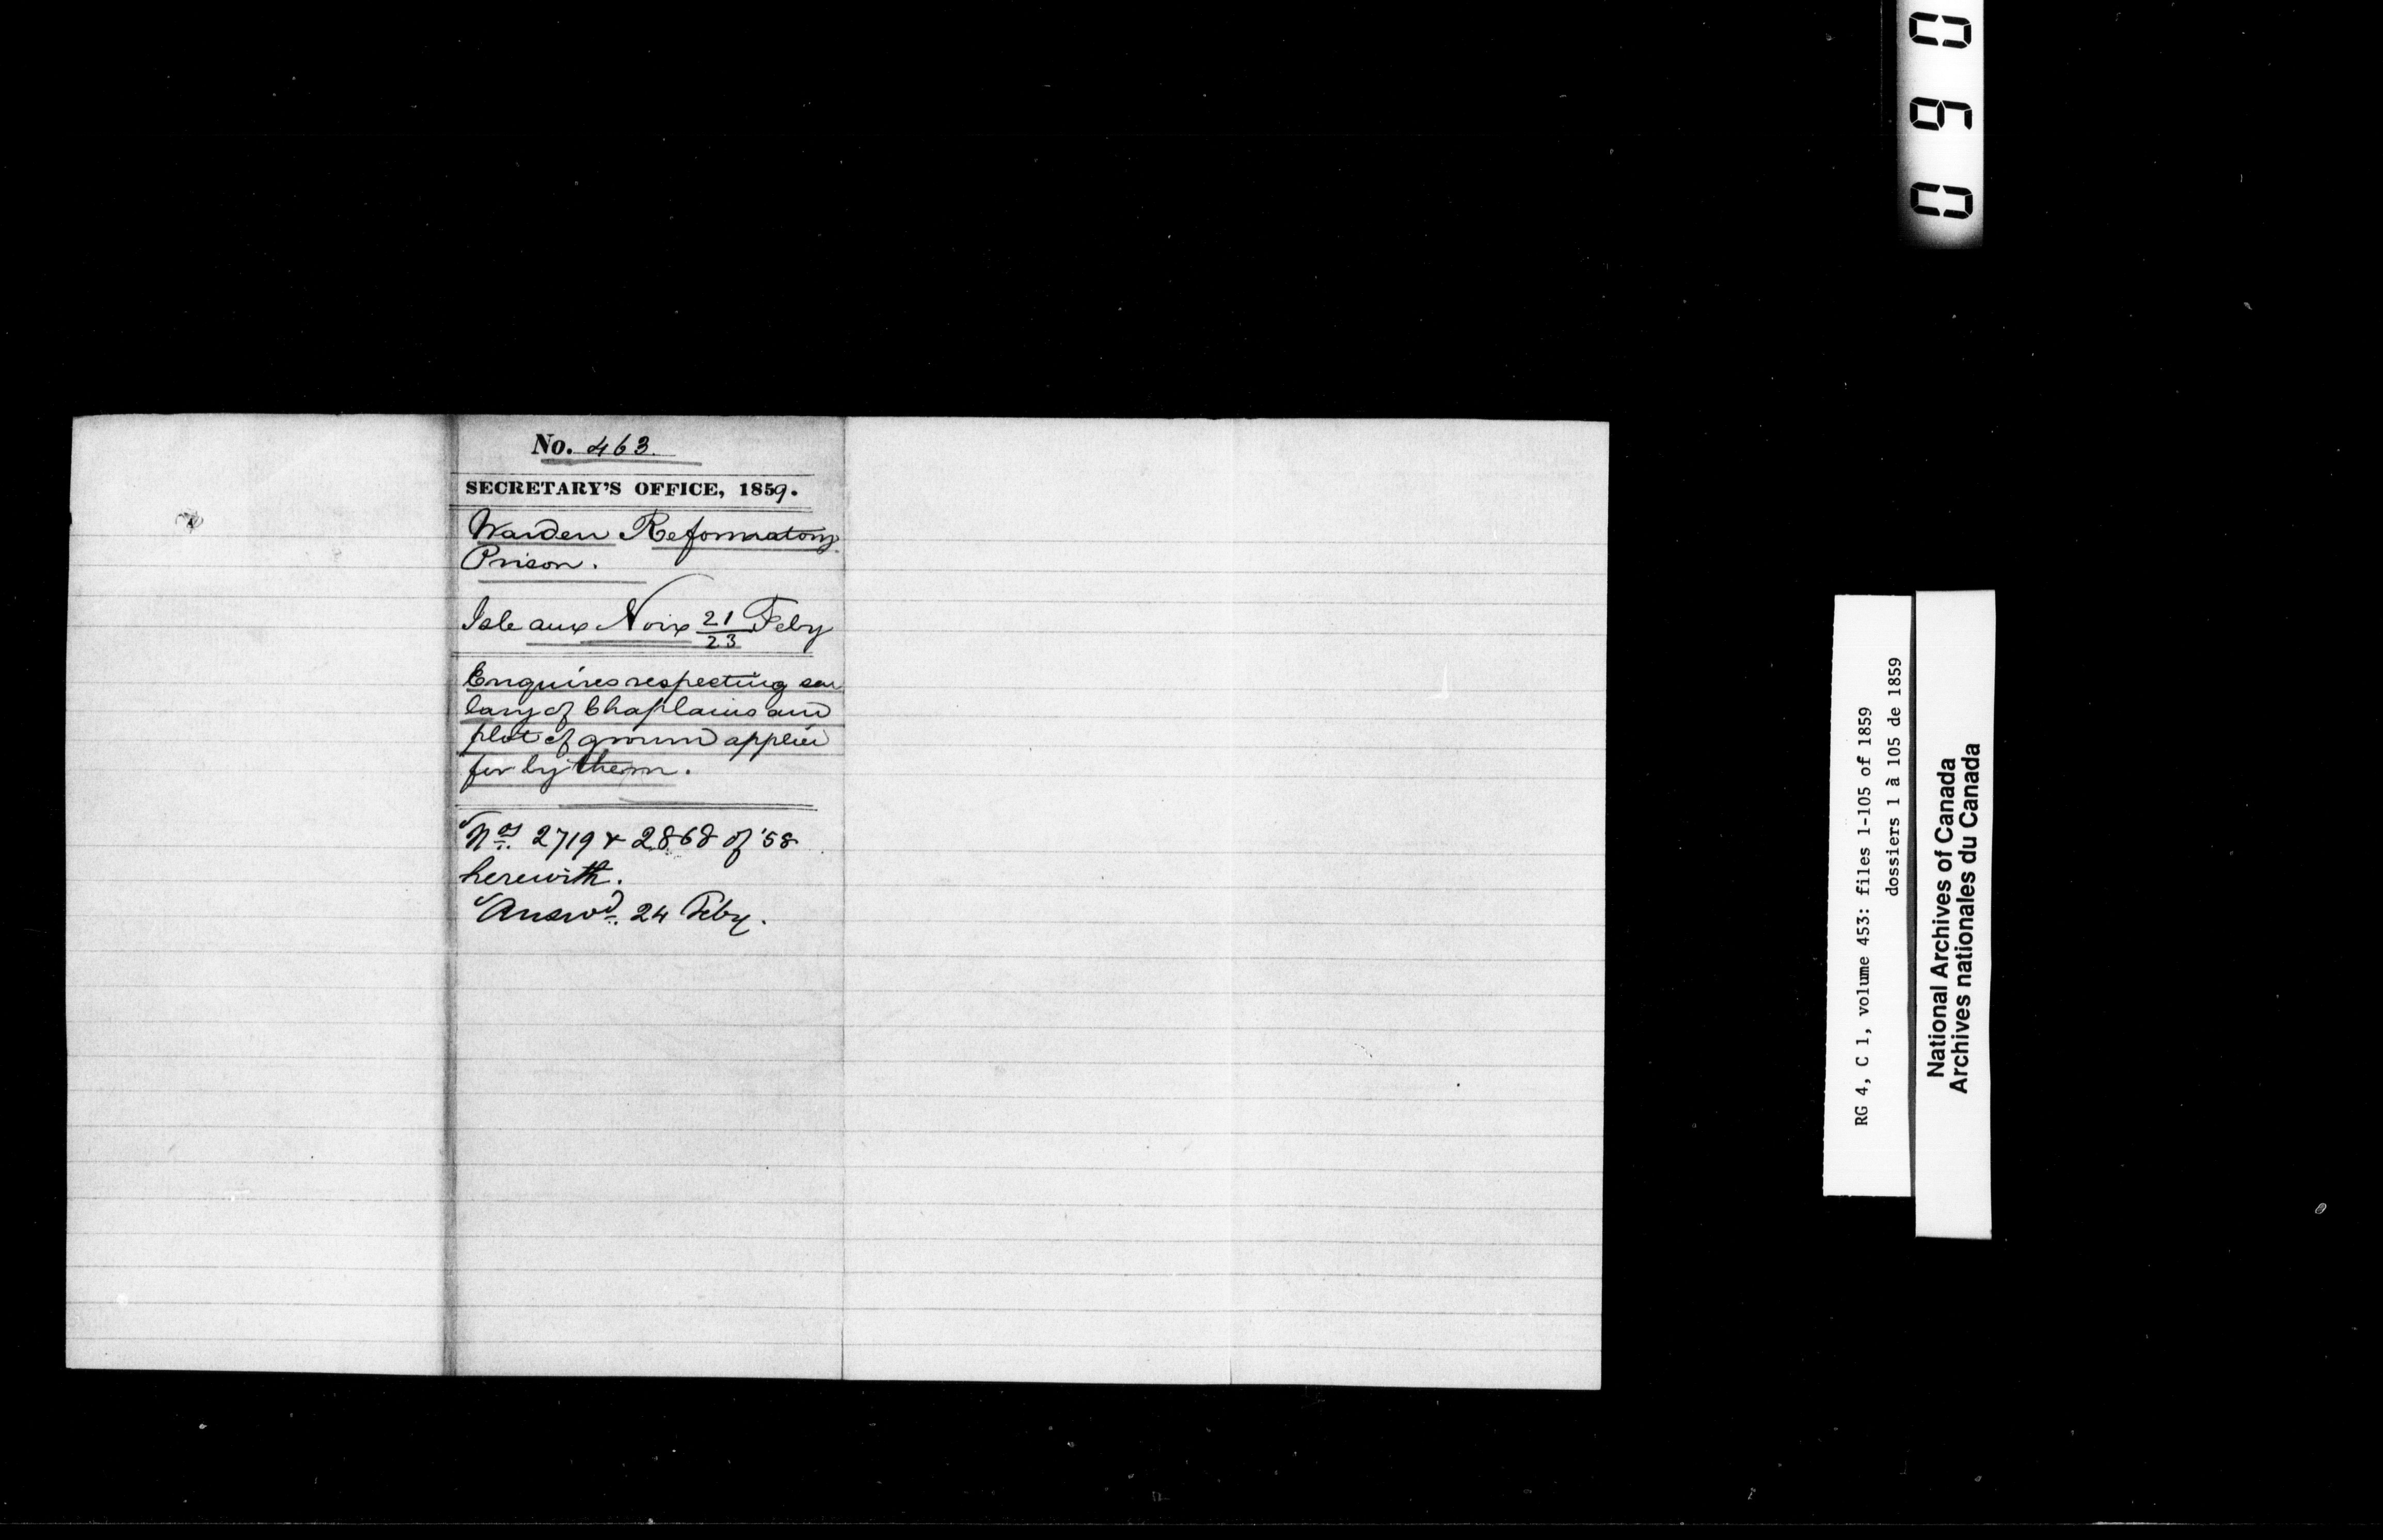 No. 463.
SECRETARY'S OFFICE, 1859.
Warden Reformatory
Prison.
Isle aux Noix 21/23 Feby
Enquires respecting sa
lary of Chaplains and
plot of ground applied
for by them.
Nos. 2719 & 2868 of '58
herewith.
Answd. 24 Feby.
RG 4, C 1, volume 453: files 1-105 of 1859
dossiers 1 à 105 de 1859
National Archives of Canada
Archives nationales du Canada
0 6 0